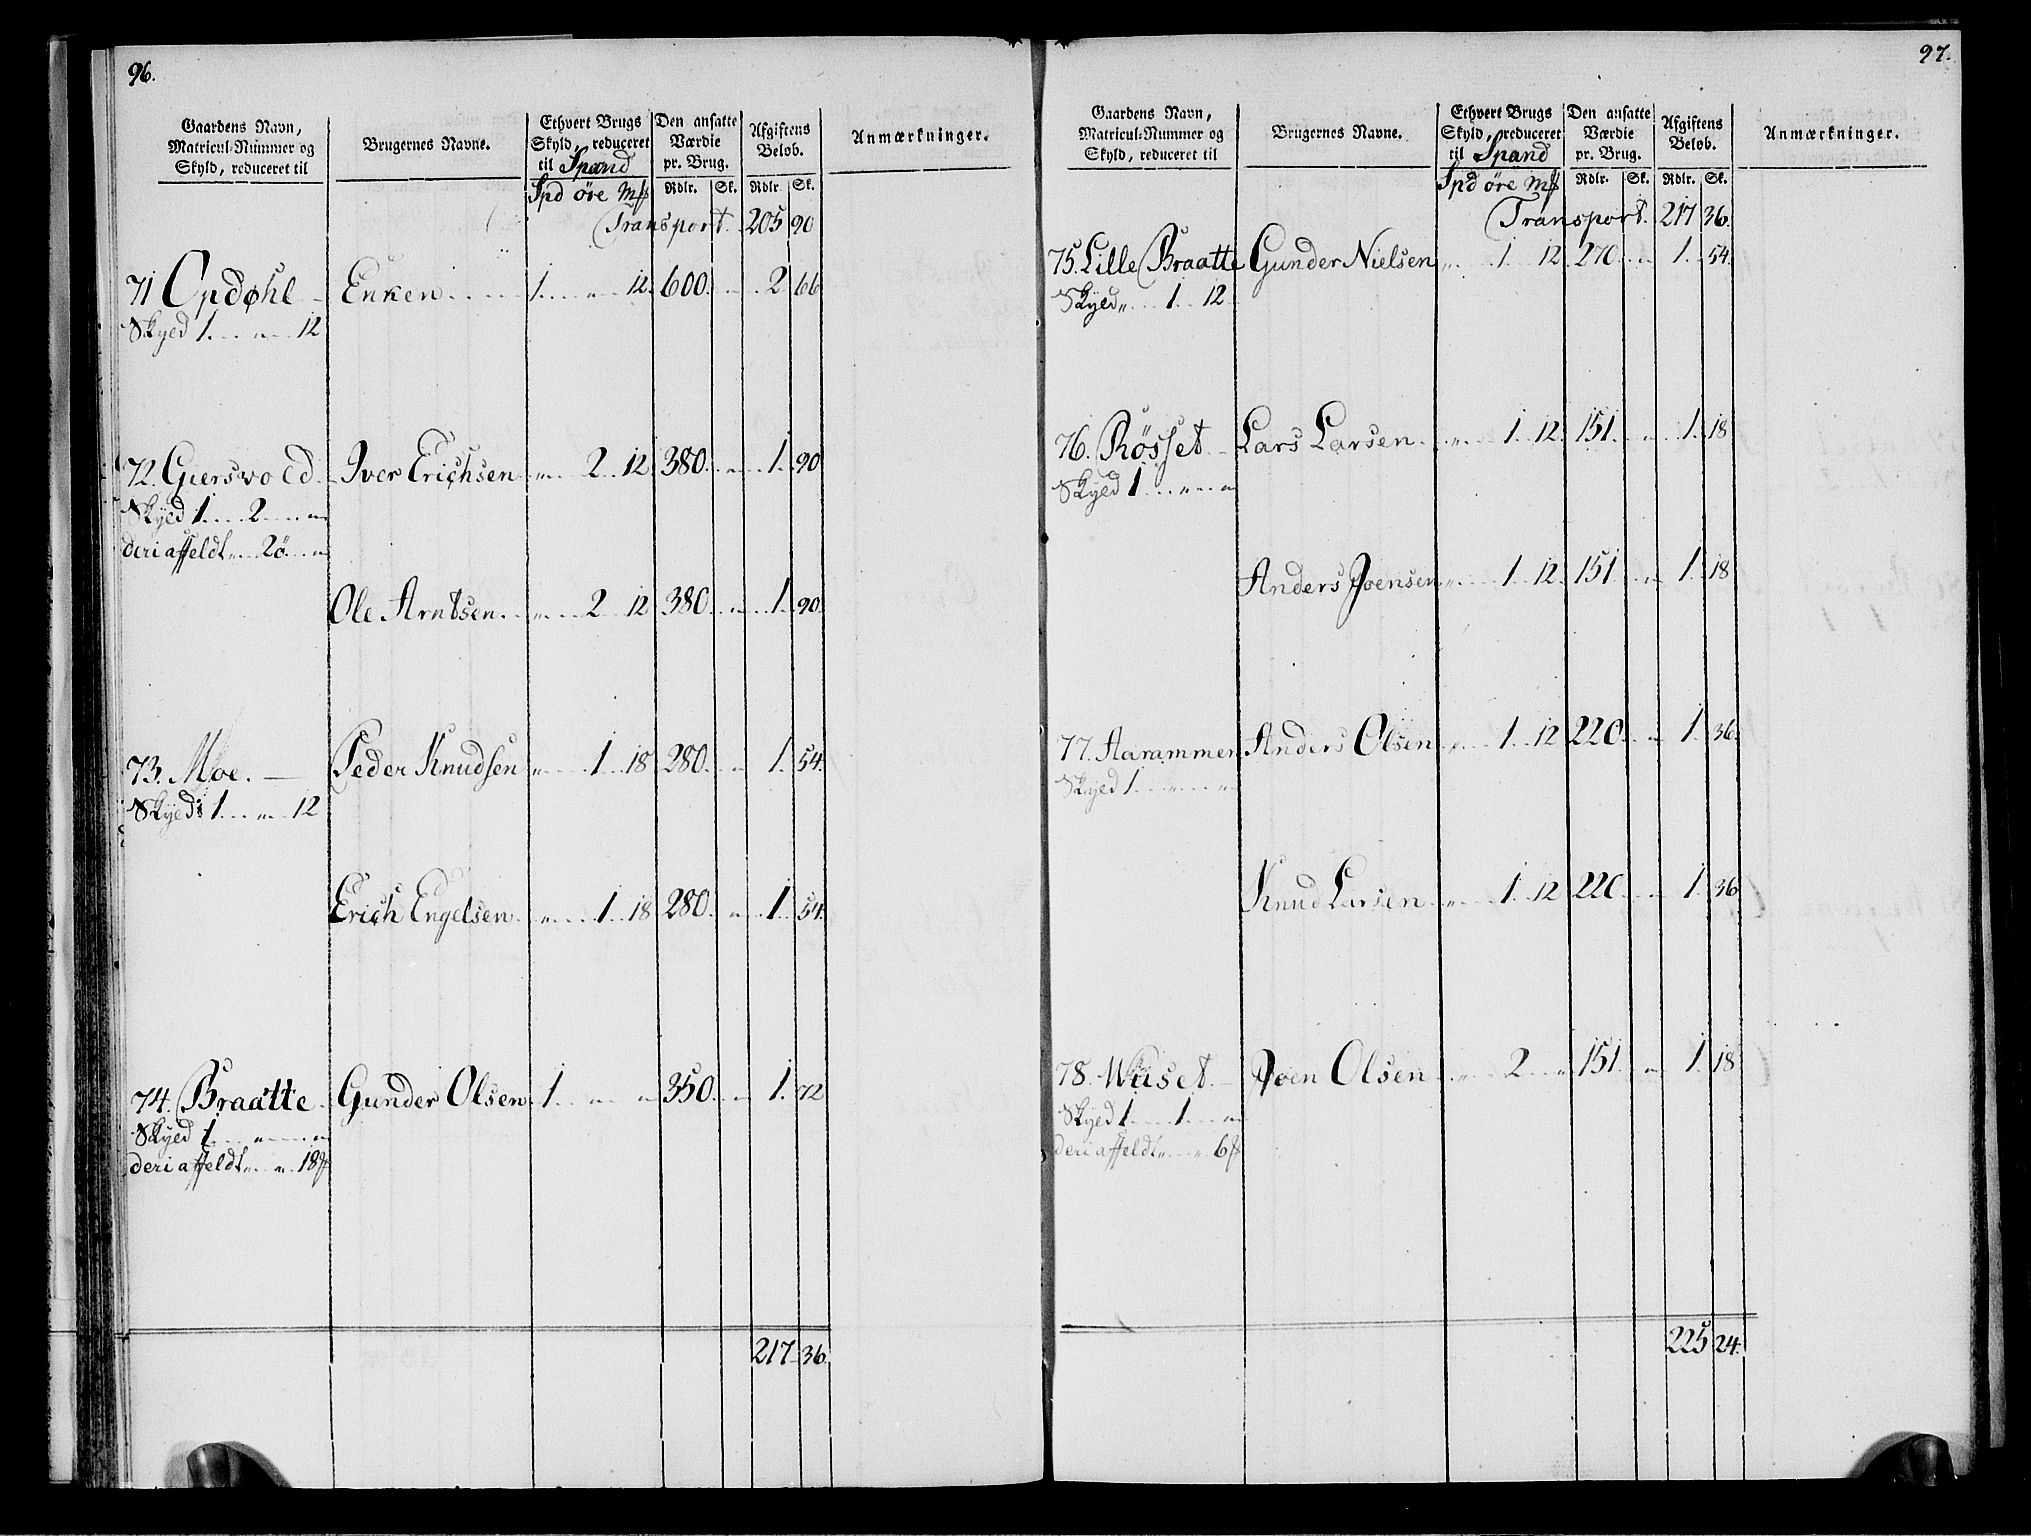 96.
Gaardens Navn, Matricul-Nummer og Skyld, reduceret til
Brugernes Navne.
Ethvert Brugs Skyld, reduceret til Spand
Den ansatte Værdie pr. Brug.
Afgiftens Beløb.
Anmærkninger.
Spd öre mk Rdlr. Sk. Rdlr. Sk.
Transport. 205 90
71 Opdøhl Enken 1 " 12. 600. " 2 66
Skyld 1 " 12
72. Giersvold Iver Erichsen " 2 12 380. " 1. 90
Skyld 1 2 "
deri affeldt " 2ö "
Ole Arntsen " 2 12 380. " 1. 90
73. Moe. Peder Knudsen " 1 18 280. " 1. 54.
Skyld 1 " 12
Erich Engelsen " 1 18 280. " 1. 54.
74. Braatte Gunder Olsen 1 " " 350. " 1. 72
Skyld 1 " "
deri affeldt " " 18
217 36.
97.
Gaardens Navn, Matricul-Nummer og Skyld, reduceret til
Brugernes Navne.
Ethvert Brugs Skyld, reduceret til Spand
Den ansatte Værdie pr. Brug.
Afgiftens Beløb.
Anmærkninger.
Spd öre mk Rdlr. Sk. Rdlr. Sk.
Transport. 217 36.
75. Lille Braatte Gunder Nielsen " 1 12. 270 " 1 54.
Skyld " 1 12
76. Rösset Lars Larsen " 1 12. 151. " 1. 18
Skyld 1 " "
Anders Joensen " 1 12. 151 " 1 18
77. Aarammen Anders Olsen " 1 12 220 " 1. 36.
Skyld 1 " "
Knud Larsen " 1 12 220. " 1. 36
78. Wuset Joen Olsen " 2 " 151 " 1. 18
Skyld 1 1 "
deri affeldt " " 6
225 24.